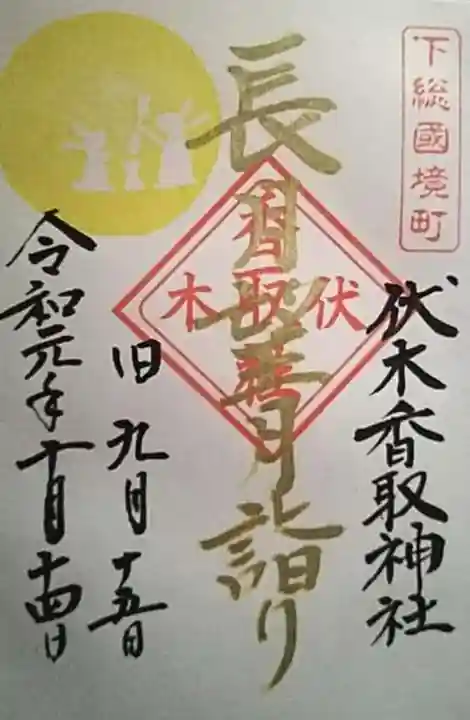 下総國境町
伏木香取神社
長月華月詣り
香取社
伏木
旧九月十五日
令和元年十月十四日